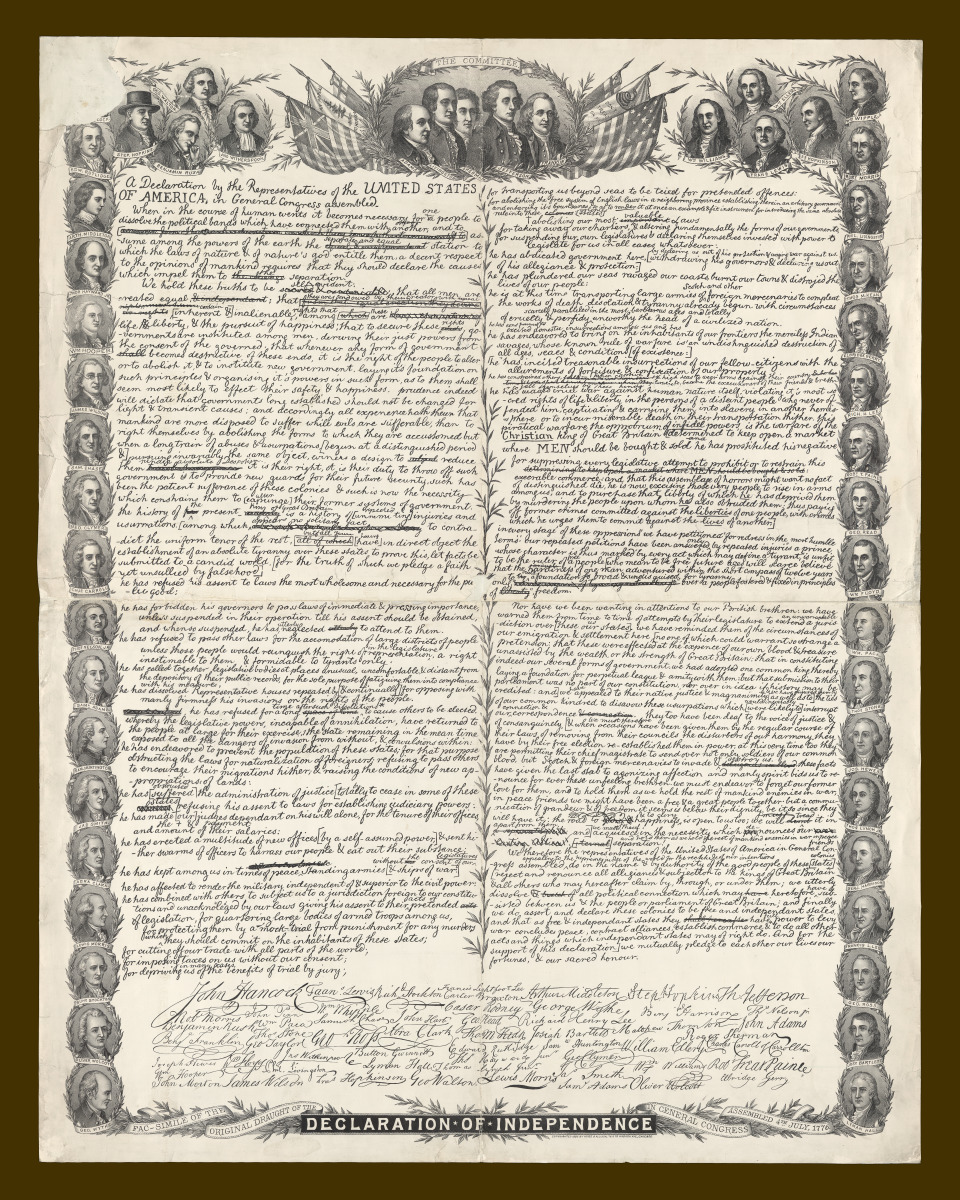 THE COMMITTEE
A Declaration by the Representatives of the UNITED STATES
OF AMERICA, in General Congress assembled.
When in the course of human events it becomes necessary for one people to
dissolve the political bands which have connected them with another, and to
sume among the powers of the earth the separate and equal station to
which the laws of nature & of nature's god entitle them, a decent respect
to the opinions of mankind requires that they should declare the causes
which impel them to separation.
We hold these truths to be self evident; that all men are
created equal
life & liberty, & the pursuit of happiness; that to secure these rights, go
vernments are instituted among men, deriving their just powers from
the consent of the governed; that whenever any form of government
shall becomes destructive of these ends, it is the right of the people to alter
or to abolish it, & to institute new government, laying it's foundation on
such principles & organising it's powers in such form, as to them shall
seem most likely to effect their safety & happiness. prudence indeed
will dictate that governments long established should not be changed for
light & transient causes: and accordingly all experience hath shewn that
mankind are more disposed to suffer while evils are sufferable, than to
right themselves by abolishing the forms to which they are accustomed. but
when a long train of abuses & usurpations [begun at a distinguished period
& ] pursuing invariably the same object, evinces a design to reduce
them it is their right, it is their duty to throw off such
government & to provide new guards for their future security. such has
been the patient sufferance of these colonies & such is now the necessity
which constrains them to [expunge] their former systems of government.
the history of present is a history of injuries and
usurpations, [among which, to contra
-dict the uniform tenor of the rest, all of which] have in direct object the
establishment of an absolute tyranny over these states. to prove this, let facts be
submitted to a candid world, [for the truth of which we pledge a faith
yet unsullied by falsehood]
he has refused his assent to laws the most wholesome and necessary for the pu
-blic good:
he has forbidden his governors to pass laws of immediate & pressing importance,
unless suspended in their operation till his assent should be obtained,
and when so suspended, he has neglected utterly to attend to them.
he has refused to pass other laws for the accomodation of large districts of people
unless those people would relinquish the right of representation in the legislature, a right
inestimable to them, & formidable to tyrants only:
he has called together legislative bodies at places unusual, uncomfortable & distant from
the depository of their public records, for the sole purpose of fatiguing them into compliance
with his measures;
he has dissolved Representative houses repeatedly [& continually] for opposing with
manly firmness his invasions on the rights of the people:
he has refused for a long time after such dissolutions to cause others to be elected
whereby the legislative powers, incapable of annihilation, have returned to
the people at large for their exercise, the state remaining in the mean time
exposed to all the dangers of invasion from without, & convulsions within:
he has endeavored to prevent the population of these states; for that purpose
obstructing the laws for naturalization of foreigners; refusing to pass others
to encourage their migrations hither; & raising the conditions of new ap-
-propriations of lands:
he has [suffered] the administration of justice [totally to cease in some of these
states] refusing his assent to laws for establishing judiciary powers:
he has made [our] judges dependant on his will alone, for the tenure of their offices,
and amount of their salaries:
he has erected a multitude of new offices [by a self-assumed power] & sent hi-
-ther swarms of officers to harrass our people & eat out their substance:
he has kept among us in times of peace, standing armies [& ships of war] without the consent of our legislatures
he has affected to render the military independent of & superior to the civil power:
he has combined with others to subject us to a jurisdiction foreign to our constitu-
-tions and unacknoleged by our laws; giving his assent to their pretended acts
of legislation, for quartering large bodies of armed troops among us;
for protecting them by a mock-trial from punishment for any murders
which they should commit on the inhabitants of these states;
for cutting off our trade with all parts of the world;
for imposing taxes on us without our consent;
for depriving us in many cases of the benefits of trial by jury;
for transporting us beyond seas to be tried for pretended offences:
for taking away our charters, abolishing our most valuable laws & altering fundamentally the forms of our governments
for suspending our own legislatures & declaring themselves invested with power to
legislate for us in all cases whatsoever:
he has abdicated government here, [withdrawing his governors, & declaring us out
of his allegiance & protection:]
he has plundered our seas, ravaged our coasts, burnt our towns & destroyed the
lives of our people:
he is at this time transporting large armies of Scotch and other foreign mercenaries to compleat
the works of death, desolation & tyranny, already begun with circumstances
of cruelty & perfidy unworthy the head of a civilized nation.
he has endeavored to bring on the inhabitants of our frontiers the merciless Indian
savages, whose known rule of warfare is an undistinguished destruction of
all ages, sexes & conditions [of existence:]
he has incited treasonable insurrections of our fellow-citizens with the
allurements of forfeiture & confiscation of our property:
he has waged cruel war against human nature itself, violating it's most sa-
-cred rights of life & liberty in the persons of a distant people who never of-
fended him, captivating & carrying them into slavery in another hemis-
-phere, or to incur miserable death in their transportation thither. this
piratical warfare, the opprobrium of infidel powers, is the warfare of the
Christian king of Great Britain. determined to keep open a market
where MEN should be bought & sold, he has prostituted his negative
for suppressing every legislative attempt to prohibit or to restrain this
execrable commerce: and that this assemblage of horrors might want no fact
of distinguished die, he is now exciting those very people to rise in arms
among us, and to purchase that liberty of which he has deprived them,
by murdering the people upon whom he also obtruded them; thus paying
off former crimes committed against the liberties of one people, with crimes
which he urges them to commit against the lives of another]
in every stage of these oppressions we have petitioned for redress in the most humble
terms; our repeated petitions have been answered by repeated injuries. a prince
whose character is thus marked by every act which may define a tyrant, is unfit
to be the ruler of a people who mean to be free. future ages will scarce believe
that the hardiness of one man, adventured within the short compass of twelve years
over a people fostered & fixed in principles
of freedom.
Nor have we been wanting in attentions to our British brethren. we have
warned them from time to time of attempts by their legislature to extend a juris-
diction over [these our states]. we have reminded them of the circumstances of
our emigration & settlement here, [no one of which could warrant so strange a
pretension: that these were effected at the expence of our own blood & treasure,
unassisted by the wealth or the strength of Great Britain: that in constituting
indeed our several forms of government, we had adopted one common king, thereby
laying a foundation for perpetual league & amity with them: but that submission to their
parliament was no part of our constitution, nor ever in idea if history may be
credited: and] we appealed to their native justice & magnanimity [as well as to] the ties
of our common kindred to disavow these usurpations which were likely to interrupt
our correspondence they too have been deaf to the voice of justice &
of consanguinity, [& when occasions have been given them, by the regular course of
their laws, of removing from their councils the disturbers of our harmony, they
have by their free election re-established them in power. at this very time too they
are permitting their chief magistrate to send over not only soldiers of our common
blood, but Scotch & foreign mercenaries to invade & these facts
have given the last stab to agonizing affection, and manly spirit bids us to re-
nounce for ever these unfeeling brethren. we must endeavor to forget our former
love for them, and to hold them as we hold the rest of mankind enemies in war,
in peace friends. we might have been a free & a great people together; but a commu-
nication of grandeur & of freedom it seems is below their dignity. be it so, since they
will have it; the road to happiness & to glory is open to us too; we will
and acquiesce in the necessity which denounces our
[eternal] separation
We therefore the representatives of the United States of America in General Con-
gress assembled, do in the name & by authority of the good people of these [states]
[reject and renounce all allegiance & subjection to the kings of Great Britain
& all others who may hereafter claim by, through, or under them; we utterly
dissolve all political connection which may heretofore have sub-
-sisted between us & the people or parliament of Great Britain; and finally
we do assert and declare these colonies to be free and independent states,
and that as free & independent states they have power to levy
war, conclude peace, contract alliances, establish commerce, & to do all other
acts and things which independent states may of right do. And for the
support of this declaration we mutually pledge to each other our lives our
fortunes, & our sacred honour.
John Hancock Richd Stockton Francis Lightfoot Lee Carter Braxton Arthur Middleton Step Hopkins Th Jefferson
Robt Morris Wm Whipple Caesar Rodney George Wythe Benj Harrison Ths Nelson jr
Benjamin Rush Wm Paca Samuel Chase John Hart Geo Read Richard Henry Lee John Adams
Benj Franklin Geo Taylor Geo Ross Abra Clark Thos M:Kean Josiah Bartlett Matthew Thornton Roger Sherman
Button Gwinnett Geo Clymer William Ellery Charles Carroll of Carrollton
Lyman Hall Robt Treat Paine
John Morton James Wilson Geo Walton Lewis Morris Ja. Smith Saml Adams Oliver Wolcott Elbridge Gerry
FAC-SIMILE OF THE ORIGINAL DRAUGHT OF THE
DECLARATION OF INDEPENDENCE
IN GENERAL CONGRESS ASSEMBLED 4TH JULY, 1776